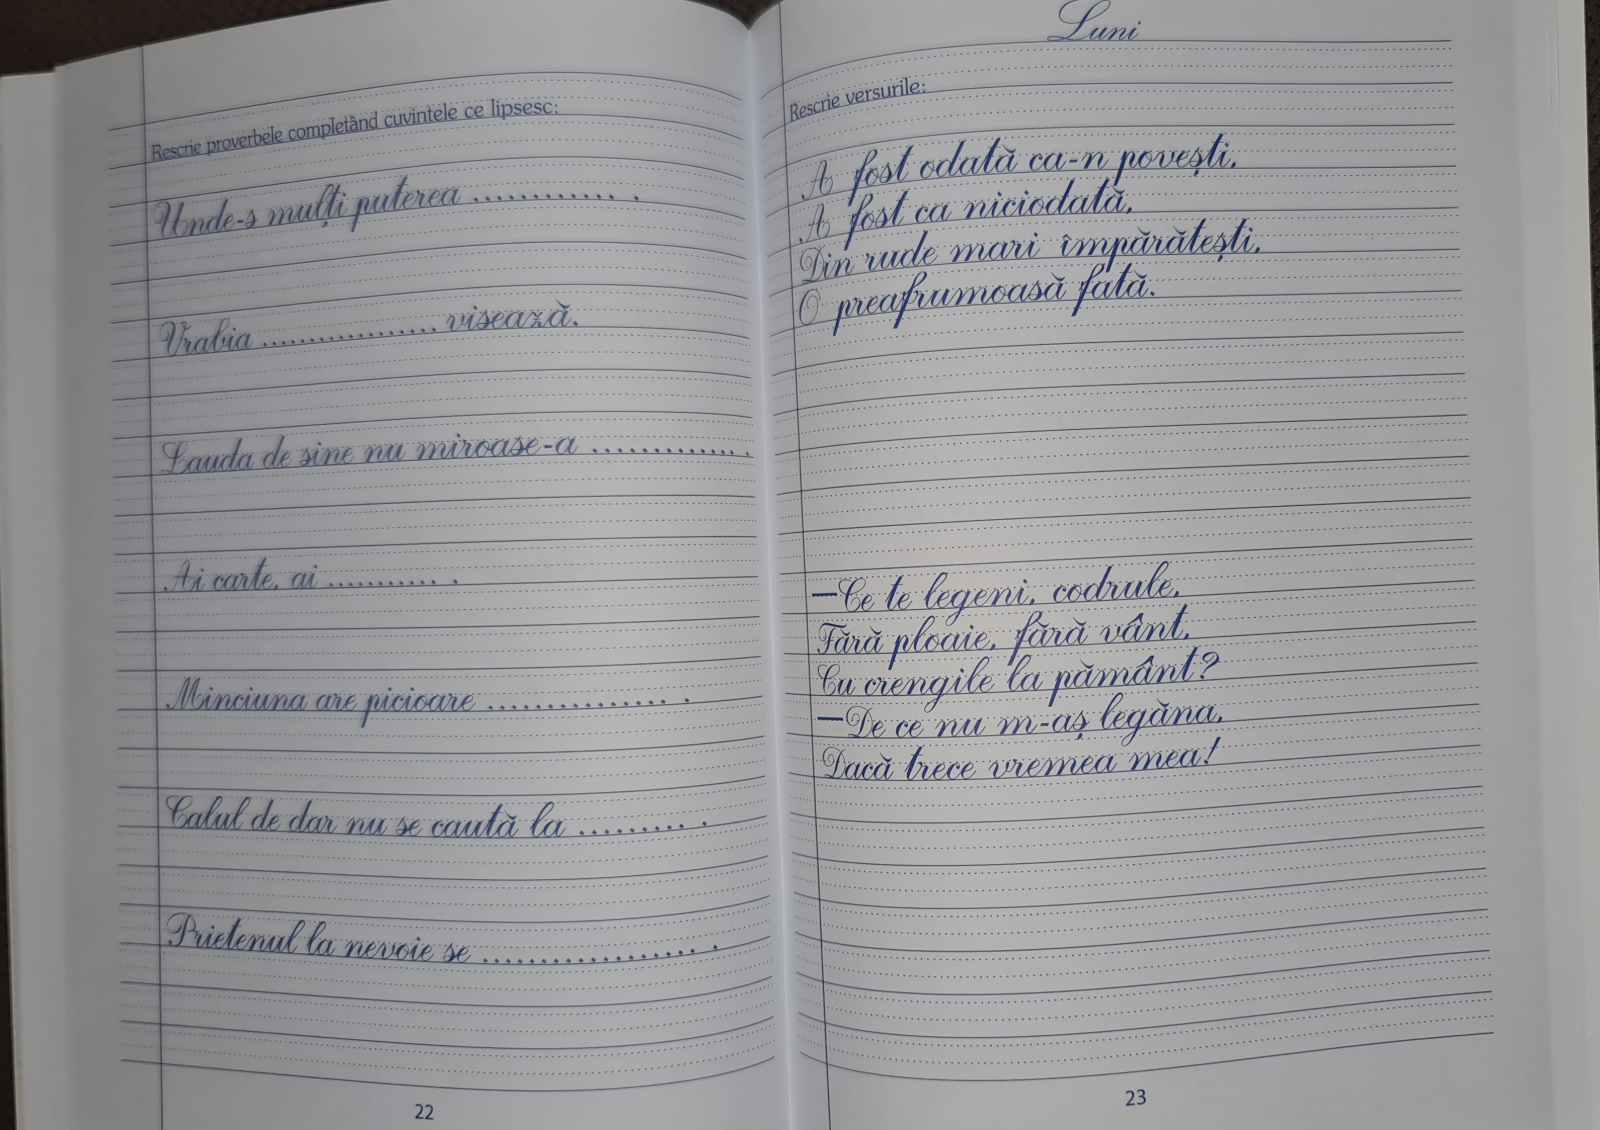 Rescrie proverbele completând cuvintele ce lipsesc:
Unde-s mulți puterea ............ .
Vrabia .................. visează.
Lauda de sine nu miroase-a ............. .
Ai carte, ai ........... .
Minciuna are picioare ............... .
Calul de dar nu se caută la ......... .
Prietenul la nevoie se .................. .
22
Luni
Rescrie versurile:
A fost odată ca-n povești,
A fost ca niciodată,
Din rude mari împărătești,
O preafrumoasă fată.
—Ce te legeni, codrule,
Fără ploaie, fără vânt,
Cu crengile la pământ?
—De ce nu m-aș legăna,
Dacă trece vremea mea!
23